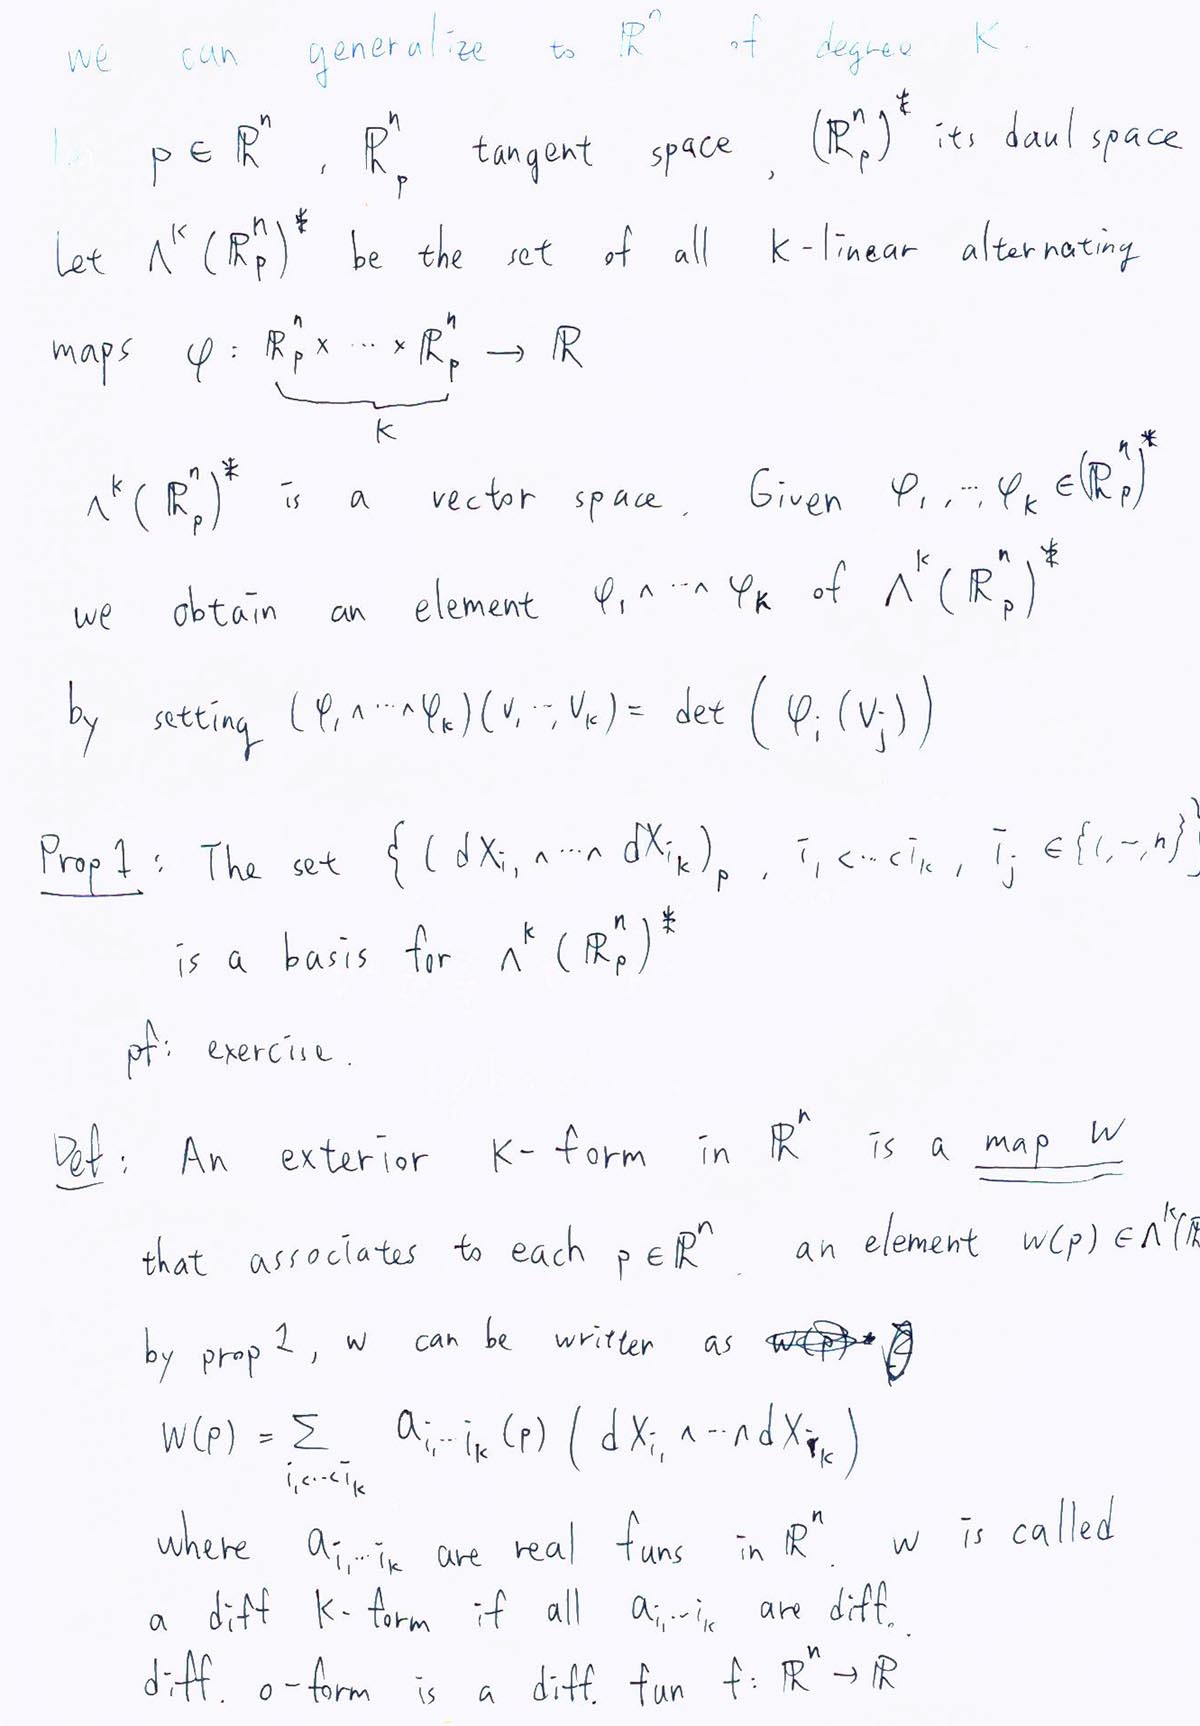 we can generalize to ℝⁿ of degree K.
p ∈ ℝⁿ, ℝⁿₚ tangent space, (ℝⁿₚ)* its daul space
Let Λᵏ(ℝⁿₚ)* be the set of all k-linear alternating
maps φ: ℝⁿₚ × ··· × ℝⁿₚ → ℝ
k
Λᵏ(ℝⁿₚ)* is a vector space. Given φ₁, ···, φₖ ∈ (ℝⁿₚ)*
we obtain an element φ₁ ∧ ··· ∧ φₖ of Λᵏ(ℝⁿₚ)*
by setting (φ₁ ∧ ··· ∧ φₖ)(v₁, ··, vₖ) = det (φᵢ(vⱼ))
Prop 1: The set {(dx_{i₁} ∧ ··· ∧ dx_{iₖ})ₚ, i₁ < ··· < iₖ, iⱼ ∈ {1, –, n}}
is a basis for Λᵏ(ℝⁿₚ)*
pf: exercise.
Def: An exterior K-form in ℝⁿ is a map w
that associates to each p ∈ ℝⁿ an element w(p) ∈ Λᵏ(ℝ
by prop 1, w can be written as
w(p) = Σ_{i₁<···<iₖ} a_{i₁···iₖ}(p) (dx_{i₁} ∧ ··· ∧ dx_{iₖ})
where a_{i₁···iₖ} are real funs in ℝⁿ. w is called
a diff K-form if all a_{i₁···iₖ} are diff.
diff. 0-form is a diff. fun f: ℝⁿ → ℝ